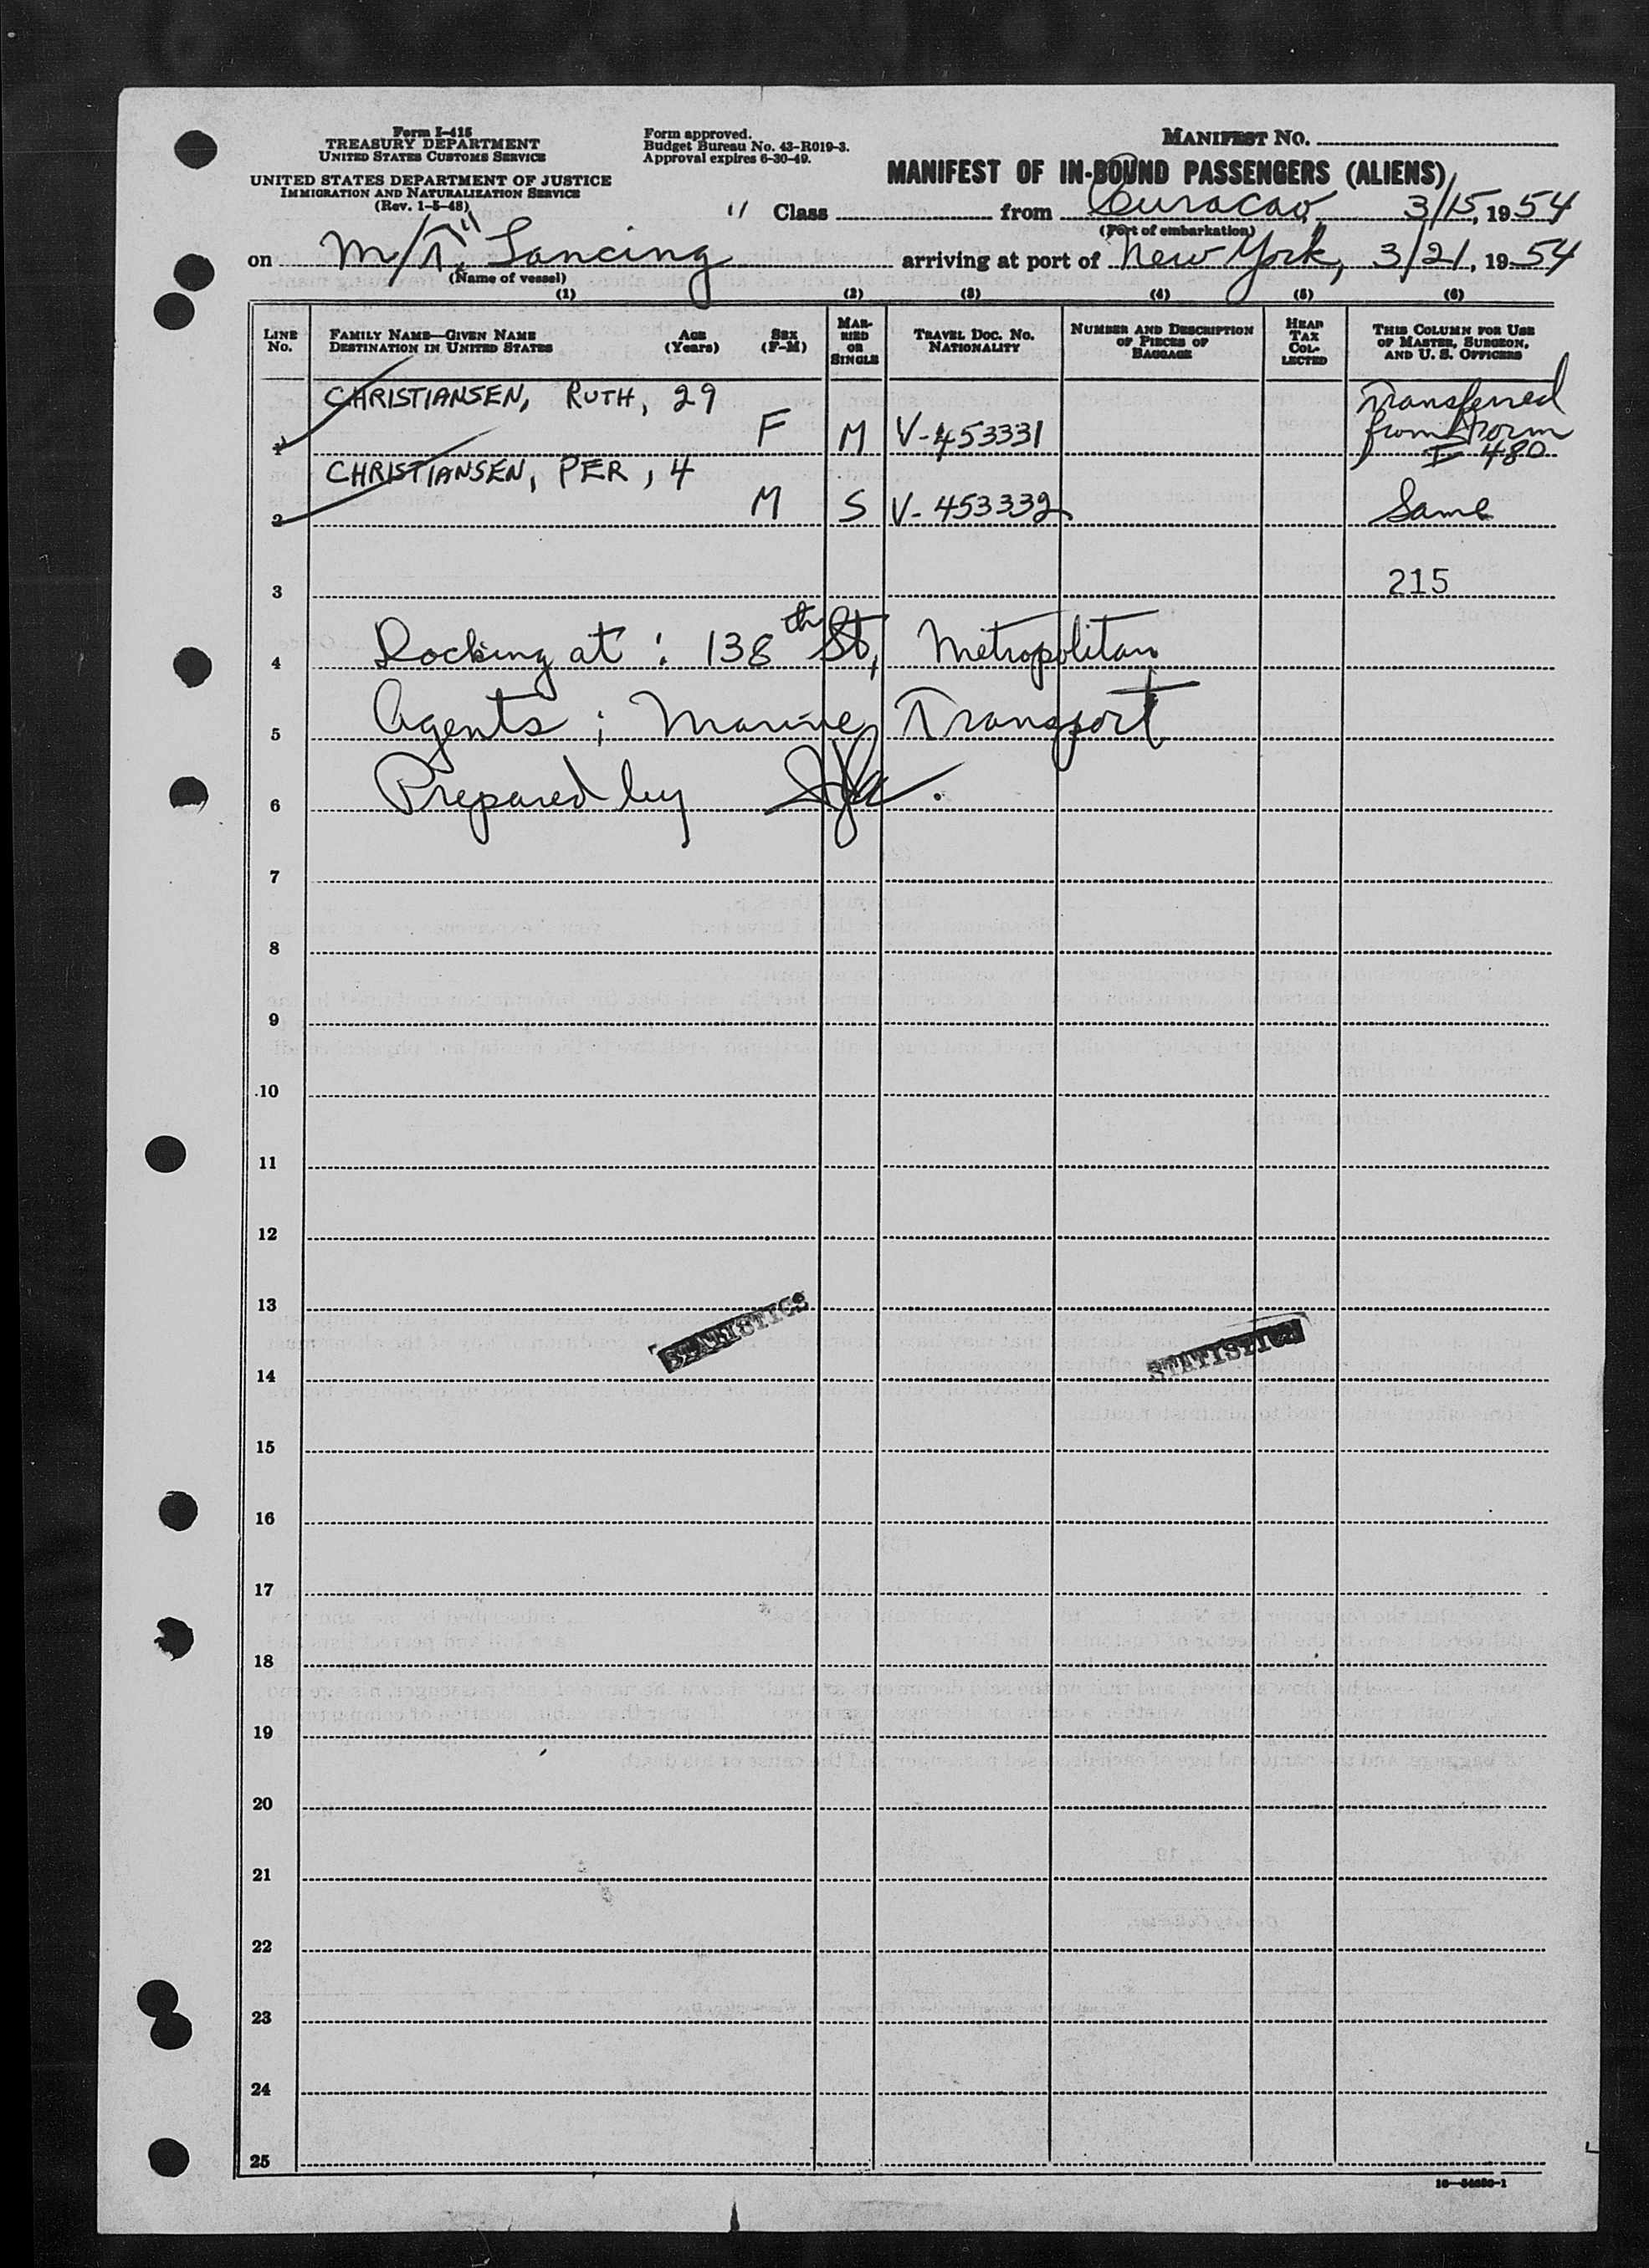 Form I-415
TREASURY DEPARTMENT
UNITED STATES CUSTOMS SERVICE
UNITED STATES DEPARTMENT OF JUSTICE
IMMIGRATION AND NATURALIZATION SERVICE
(Rev. 1-5-48)
Form approved.
Budget Bureau No. 43-R019-3.
Approval expires 6-30-49.
MANIFEST NO.
MANIFEST OF IN-BOUND PASSENGERS (ALIENS)
Class from Curacao, 3/15, 1954
(Port of embarkation)
on M/T. "Lancing" arriving at port of New York, 3/21, 1954
(Name of vessel)
(1) (2) (3) (4) (5) (6)
LINE No.
FAMILY NAME—GIVEN NAME
DESTINATION IN UNITED STATES
AGE (Years)
SEX (F-M)
MARRIED OR SINGLE
TRAVEL DOC. NO.
NATIONALITY
NUMBER AND DESCRIPTION OF PIECES OF BAGGAGE
HEAD TAX COLLECTED
THIS COLUMN FOR USE OF MASTER, SURGEON, AND U. S. OFFICERS
1 CHRISTIANSEN, RUTH, 29 F M V-453331 Transferred from Form I 480
2 CHRISTIANSEN, PER, 4 M S V-453332 Same
3 215
4 Docking at : 138th St, Metropolitan
5 Agents : Marine Transport
6 Prepared by
7
8
9
10
11
12
13
STATISTICS STATISTICS
14
15
16
17
18
19
20
21
22
23
24
25